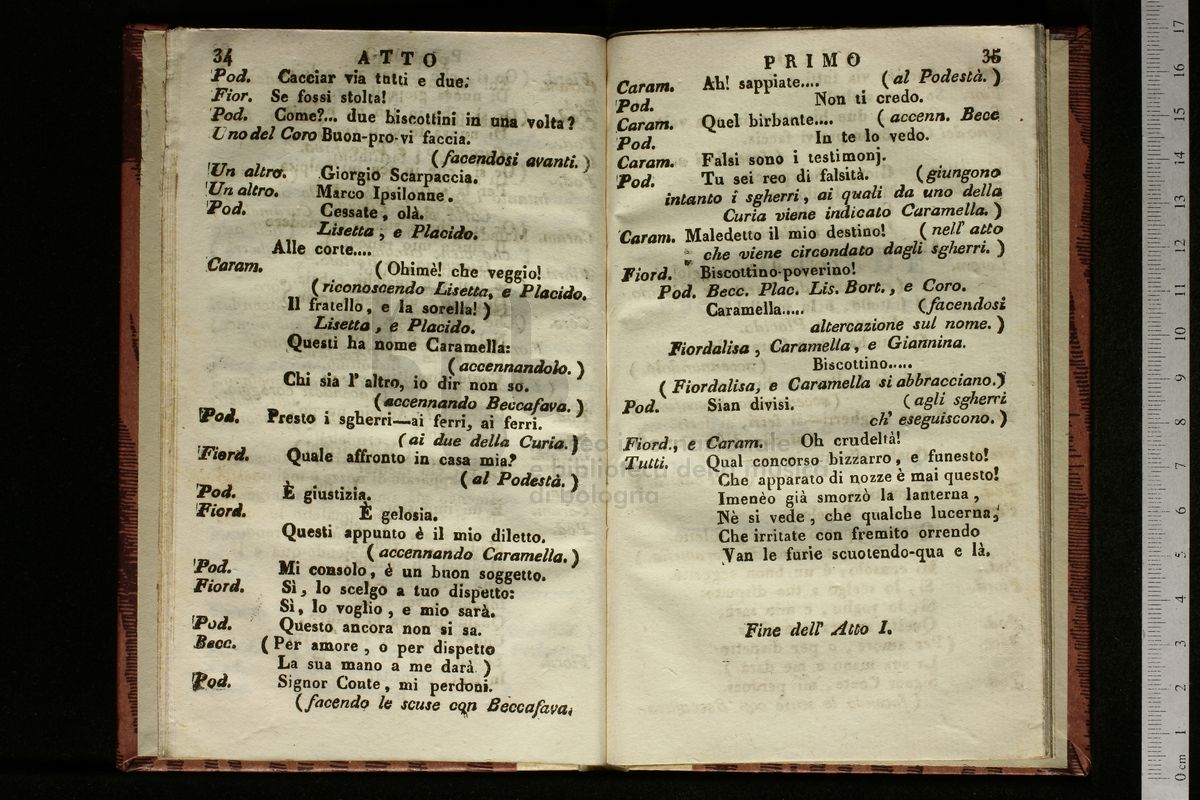 34 ATTO
Pod. Cacciar via tutti e due.
Fior. Se fossi stolta!
Pod. Come?... due biscottini in una volta?
Uno del Coro Buon-pro-vi faccia.
(facendosi avanti.)
Un altro. Giorgio Scarpaccia.
Un altro. Marco Ipsilonne.
Pod. Cessate, olà.
Lisetta, e Placido.
Alle corte....
Caram. (Ohimè! che veggio!
(riconoscendo Lisetta, e Placido.
Il fratello, e la sorella!)
Lisetta, e Placido.
Questi ha nome Caramella:
(accennandolo.)
Chi sia l' altro, io dir non so.
(accennando Beccafava.)
Pod. Presto i sgherri—ai ferri, ai ferri.
(ai due della Curia.)
Fiord. Quale affronto in casa mia?
(al Podestà.)
Pod. È giustizia.
Fiord. È gelosia.
Questi appunto è il mio diletto.
(accennando Caramella.)
Pod. Mi consolo, è un buon soggetto.
Fiord. Sì, lo scelgo a tuo dispetto:
Sì, lo voglio, e mio sarà.
Pod. Questo ancora non si sa.
Becc. (Per amore, o per dispetto
La sua mano a me darà.)
Pod. Signor Conte, mi perdoni.
(facendo le scuse con Beccafava.
PRIMO 35
Caram. Ah! sappiate.... (al Podestà.)
Pod. Non ti credo.
Caram. Quel birbante.... (accenn. Becc.
Pod. In te lo vedo.
Caram. Falsi sono i testimonj.
Pod. Tu sei reo di falsità. (giungono
intanto i sgherri, ai quali da uno della
Curia viene indicato Caramella.)
Caram. Maledetto il mio destino! (nell' atto
che viene circondato dagli sgherri.)
Fiord. Biscottino-poverino!
Pod. Becc. Plac. Lis. Bort., e Coro.
Caramella..... (facendosi
altercazione sul nome.)
Fiordalisa, Caramella, e Giannina.
Biscottino.....
(Fiordalisa, e Caramella si abbracciano.)
Pod. Sian divisi. (agli sgherri
ch' eseguiscono.)
Fiord., e Caram. Oh crudeltà!
Tutti. Qual concorso bizzarro, e funesto!
Che apparato di nozze è mai questo!
Imenèo già smorzò la lanterna,
Nè si vede, che qualche lucerna,
Che irritate con fremito orrendo
Van le furie scuotendo-qua e là.
Fine dell' Atto I.
museo internazionale
e biblioteca della musica
di bologna
0 cm 1 2 3 4 5 6 7 8 9 10 11 12 13 14 15 16 17